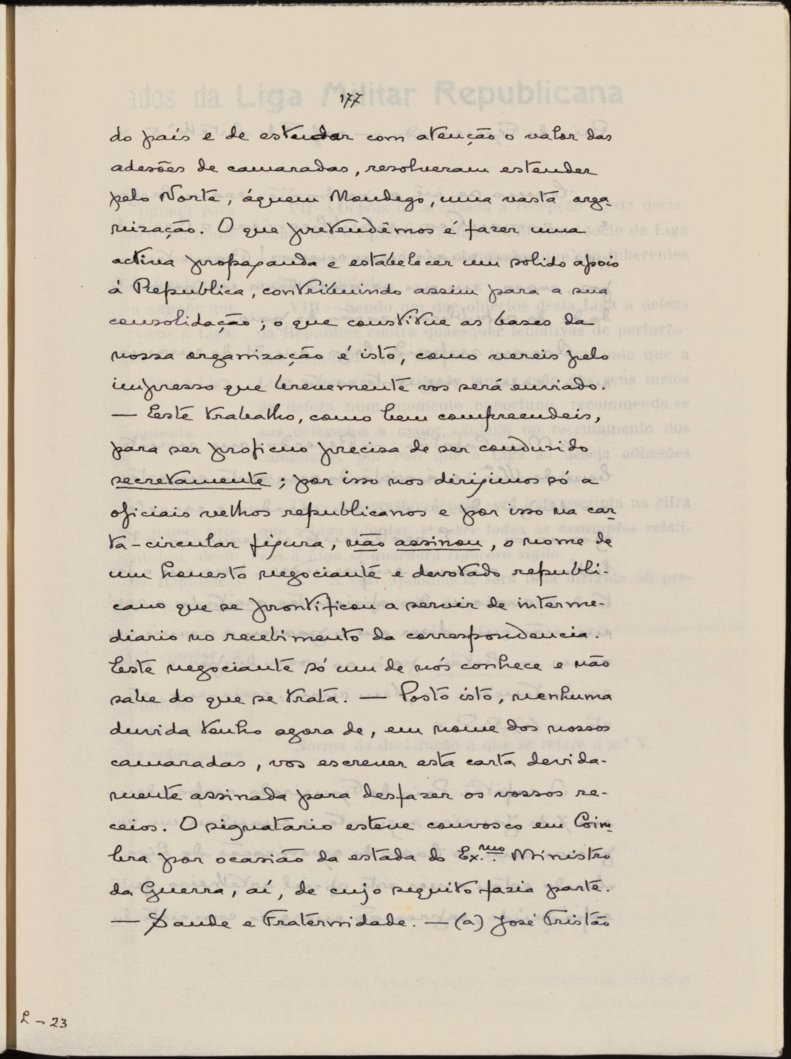 177
do país e de estudar com atenção o valor das
adesões de camaradas, resolveram estender
pelo Norte, áquem Mondego, uma vasta orga-
nização. O que pretendêmos é fazer uma
activa propaganda e estabelecer um solido apoio
á Republica, contribuindo assim para a sua
consolidação; o que constitue as bases da
nossa organização é isto, como vereis pelo
impresso que brevemente vos será enviado.
— Este trabalho, como bem compreendeis,
para ser proficuo precisa de ser condusido
secretamente; por isso nos dirigimos só a
oficiais velhos republicanos e por isso na car-
ta-circular figura, não assinou, o nome de
um honesto negociante e devotado republi-
cano que se prontificou a servir de interme-
diario no recebimento da correspondencia.
Este negociante só um de nós conhece e não
sabe do que se trata. — Posto isto, nenhuma
duvida tenho agora de, em nome dos nossos
camaradas, vos escrever esta carta devida-
mente assinada para desfazer os vossos re-
ceios. O signatario esteve convosco em Coim-
bra por ocasião da estada do Ex.mo Ministro
da Guerra, aí, de cujo sequito fazia parte.
— Saude e Fraternidade. — (a) José Tristão
L - 23